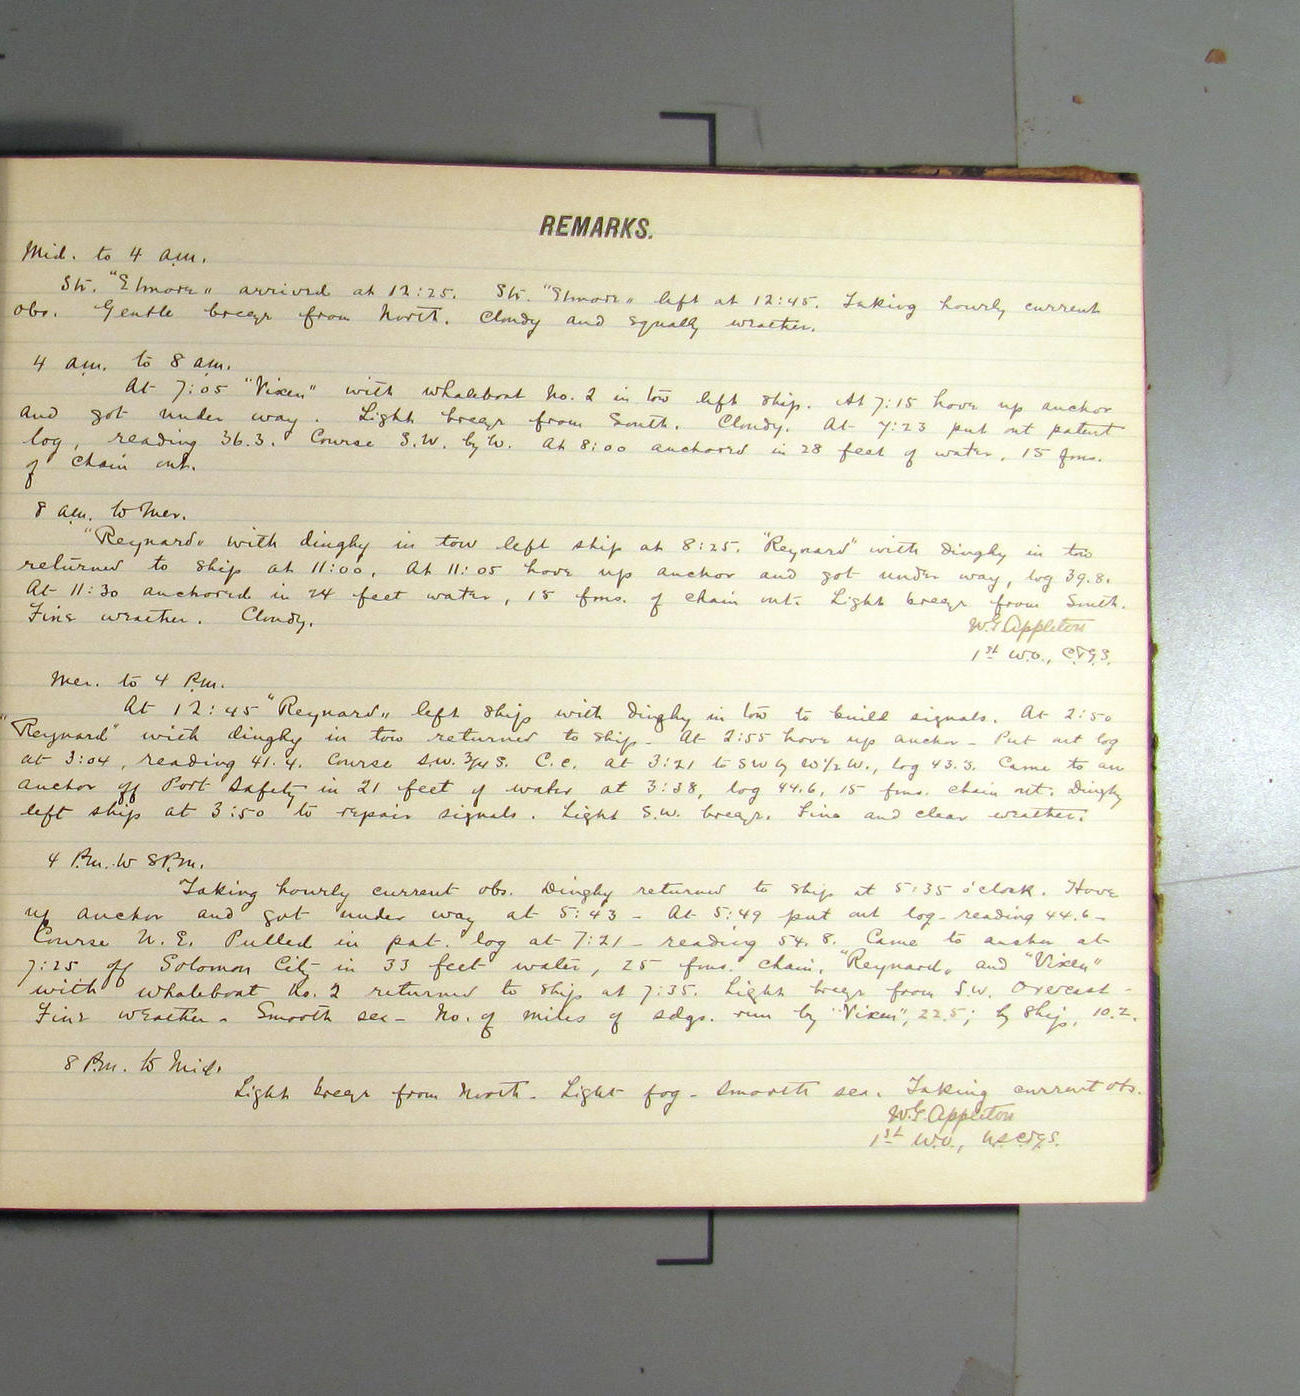 REMARKS.
Mid. to 4 a.m.
Str. "Elmore" arrived at 12:25. Str. "Elmore" left at 12:45. Taking hourly current
obs. Gentle breeze from North. Cloudy and squally weather.
4 a.m. to 8 a.m.
At 7:05 "Vixen" with whaleboat No. 2 in tow left ship. At 7:15 hove up anchor
and got under way. Light breeze from South. Cloudy. At 7:23 put out patent
log, reading 36.3. Course S.W. by W. At 8:00 anchored in 28 feet of water, 15 fms.
of chain out.
8 a.m. to Mer.
"Reynard" with dinghy in tow left ship at 8:25. "Reynard" with dinghy in tow
returned to ship at 11:00. At 11:05 hove up anchor and got under way, log 39.8.
At 11:30 anchored in 24 feet water, 15 fms. of chain out. Light breeze from South.
Fine weather. Cloudy.
W.G. Appleton
1st W.O., C.&G.S.
Mer. to 4 P.m.
At 12:45 "Reynard" left ship with dinghy in tow to build signals. At 2:50
"Reynard" with dinghy in tow returned to ship - At 2:55 hove up anchor - Put out log
at 3:04, reading 41.4. Course S.W. 3/4 S. C.c. at 3:21 to SW by W1/2W., log 43.3. Came to an
anchor off Port Safety in 21 feet of water at 3:38, log 44.6, 15 fms. chain out. Dinghy
left ship at 3:50 to repair signals. Light S.W. breeze. Fine and clear weather.
4 P.m. to 8 P.m.
Taking hourly current obs. Dinghy returned to ship at 5:35 o'clock. Hove
up anchor and got under way at 5:43 - At 5:49 put out log - reading 44.6 -
Course N.E. Pulled in pat. log at 7:21 - reading 54.8. Came to anchor at
7:25 off Solomon City in 33 feet water, 25 fms. chain. "Reynard" and "Vixen"
with whaleboat No. 2 returned to ship at 7:35. Light breeze from S.W. Overcast -
Fine weather - Smooth sea - No. of miles of sdgs. run by "Vixen", 22.5; by Ship, 10.2.
8 P.m. to Mid.
Light breeze from North - Light fog - Smooth sea. Taking current obs.
W.G. Appleton
1st W.O., U.S.C.&G.S.